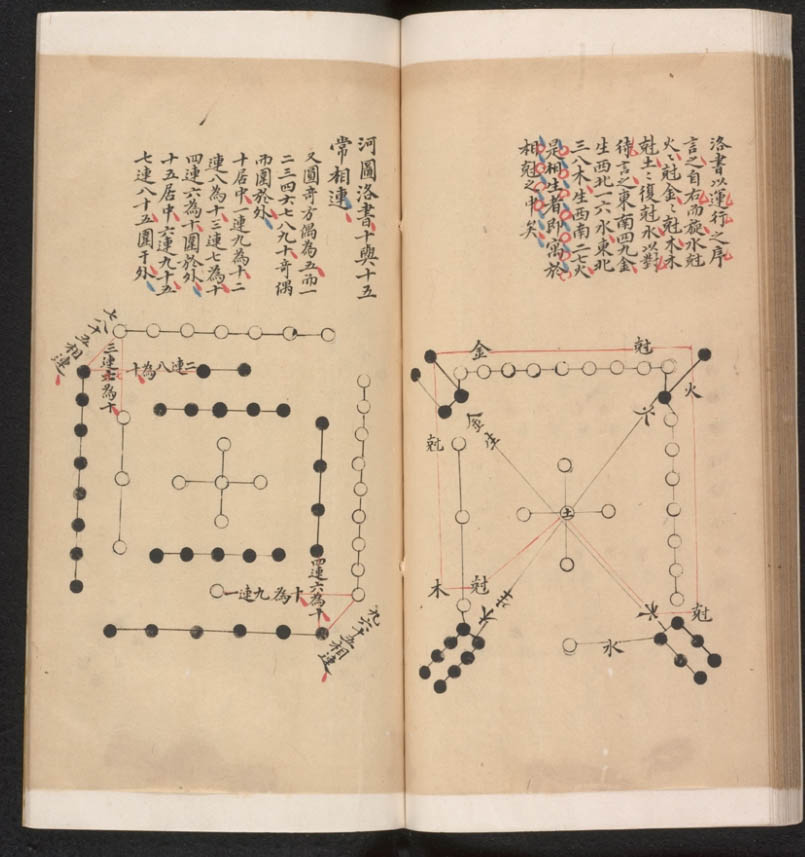 洛書以運行之序
言之自右而旋水尅
火〻尅金〻尅木木
尅土〻復尅水以對
待言之東南四九金
生西北一六水東北
三八木生西南二七火
是相生者即寓於
相尅之中矣
金
尅
火
金
生
尅
土
木
尅
木
生
水
水
尅
河圖洛書十與十五
常相連
又圖奇方偶為五而一
二三四六七八九十奇偶
而圍於外
十居中一連九為十二
連八為十三連七為十
四連六為十圍於外
十五居中六連九十五
七連八十五圍于外
七八十五相連
三連七為十
二連八為十
四連六為十
一連九為十
九六十五相連